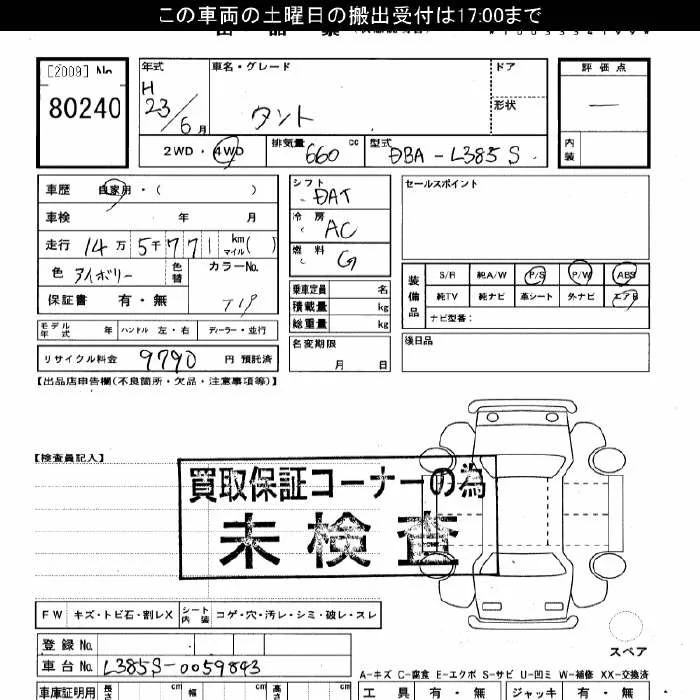 この車両の土曜日の搬出受付は17:00まで
[2009] No
80240
年式
H
23/6月
車名・グレード
タント
ドア
形状
評価点
—
内装
2WD・4WD
排気量 660 cc
型式 DBA-L385S
車歴 自家用・( )
車検 年 月
走行 14万5千771 km マイル( )
色 アイボリー
色替
カラーNo.
T19
保証書 有・無
シフト DAT
冷房 AC
燃料 G
乗車定員 名
積載量 kg
総重量 kg
セールスポイント
装備品
S/R 純A/W P/S P/W ABS
純TV 純ナビ 革シート 外ナビ エアB
ナビ型番:
モデル年式 年 ハンドル 左・右 ディーラー・並行
リサイクル料金 9790 円 預託済
名変期限
月 日
後日品
【出品店申告欄(不良箇所・欠品・注意事項等)】
【検査員記入】
買取保証コーナーの為
未検査
FW キズ・トビ石・割レX シート内装 コゲ・穴・汚レ・シミ・破レ・スレ
登録No.
車台No. L385S-0059843
スペア
A-キズ C-腐食 E-エクボ S-サビ U-凹ミ W-補修 XX-交換済
車庫証明用 長さ cm 幅 cm 高さ cm
工具 有・無 ジャッキ 有・無